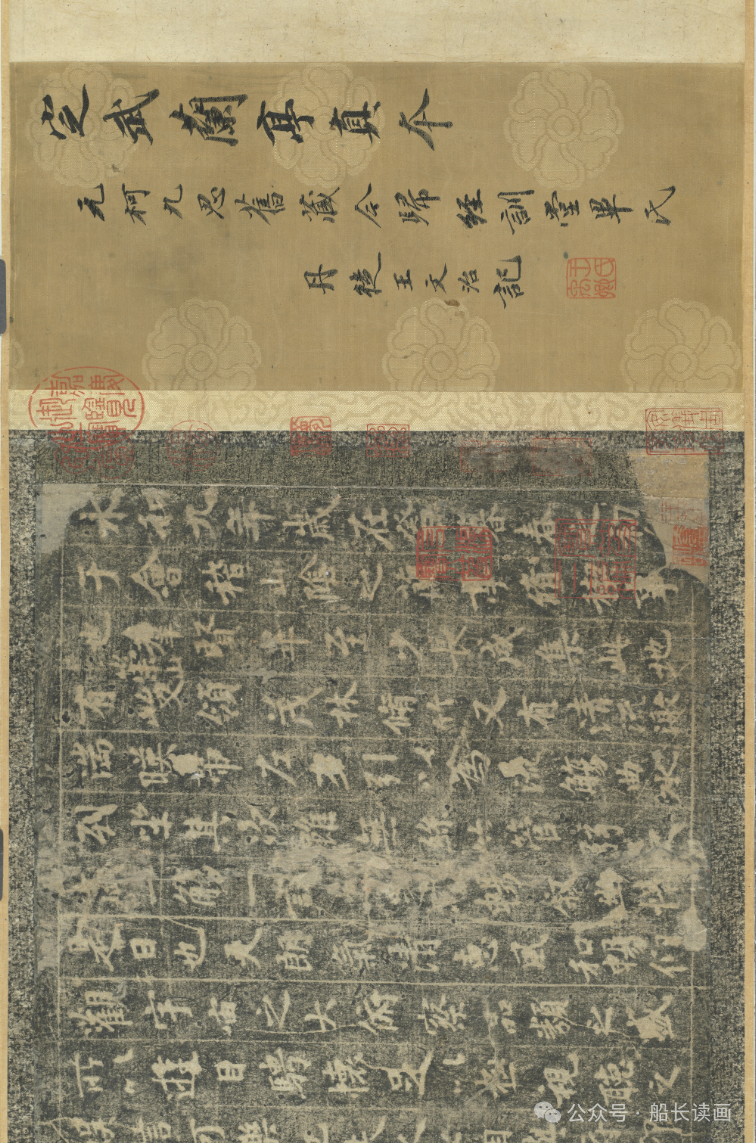 定武蘭亭真本
元柯九思舊藏今歸經訓堂畢氏
丹徒王文治記
永和九年歲在暮春之初
于會稽山陰之蘭亭脩稧事
也羣賢畢至少長咸集此地
有崇山峻領茂林脩竹又有清流激
湍暎帶左右引以為流觴曲水
列坐其次雖無絲竹管弦之
盛一觴一詠亦足以暢敘幽情
是日也天朗氣清惠風和暢仰
觀宇宙之大俯察品類之盛
所以遊目騁懷足以極視聽之
公众号·船长读画